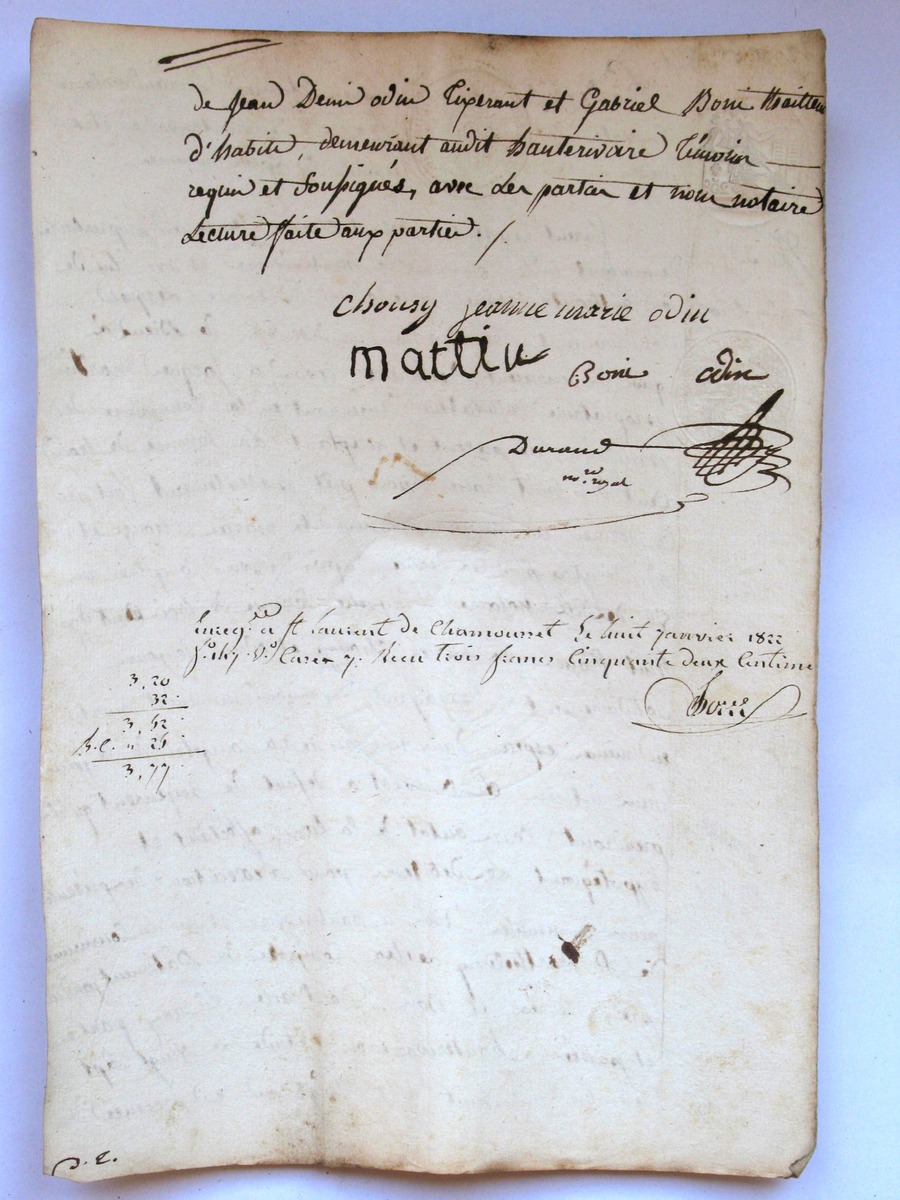 de Jean Deni odin Tixerant et Gabriel Boni tailleur
d'habits, demeurant audit hauterivoire témoins
requis et soussignés, avec les parties et nous notaire
Lecture faite aux parties. /
Chousy jeanne marie odin
mattiu
Boni odin
Durand
nore royal
Enregré a St Laurent de Chamousset le huit janvier 1822
fo 147 Vo Case 7. Recu trois francs Cinquante deux Centimes
3,20
32
3,52
B.C. " 25
3,77
p. 2.